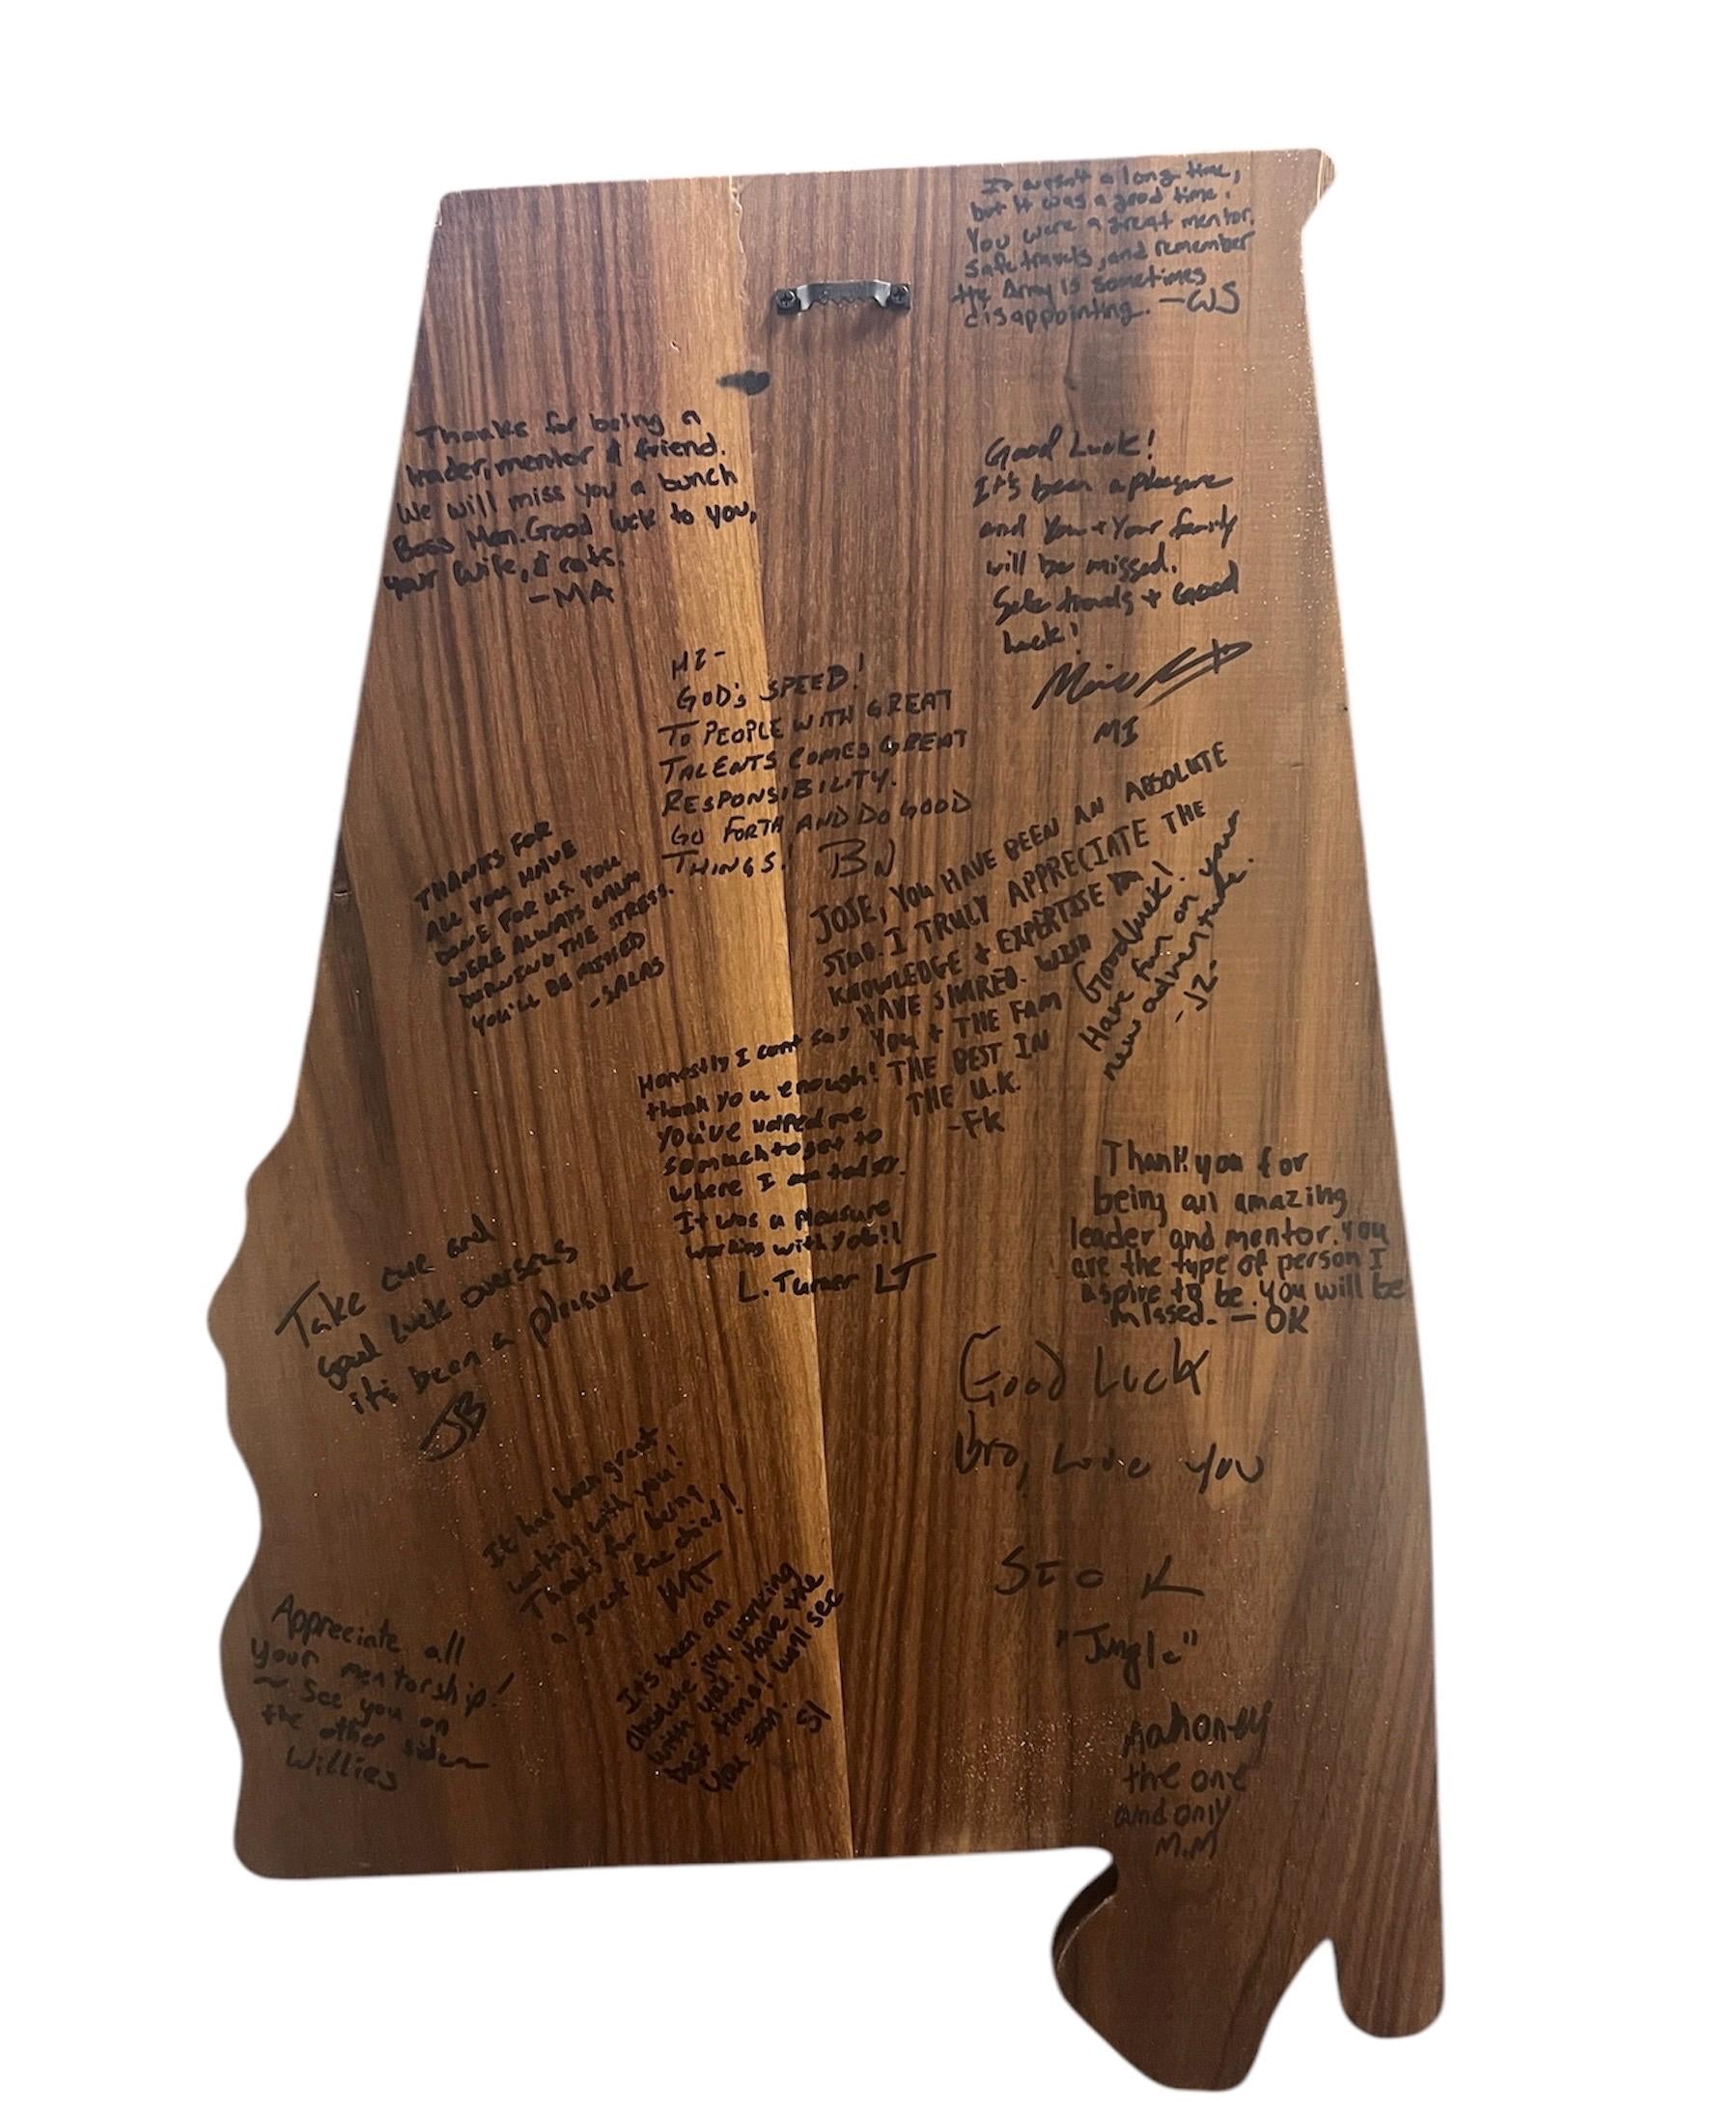 It wasn't a long time,
but it was a good time.
You were a great mentor.
Safe travels, and remember
the Army is sometimes
disappointing. -WS
Thanks for being a
leader, mentor & friend.
We will miss you a bunch
Boss Man. Good luck to you,
your wife, & cats.
-MA
Good Luck!
It's been a pleasure
and You + Your family
will be missed.
Safe travels + Good
luck!
MI
GOD'S SPEED!
TO PEOPLE WITH GREAT
TALENTS COMES GREAT
RESPONSIBILITY.
GO FORTH AND DO GOOD
THINGS! BN
THANKS FOR
ALL YOU HAVE
DONE FOR US. YOU
WERE ALWAYS CALM
DURWING THE STRESS.
YOU'LL BE MISSED
-SALAS
JOSE, YOU HAVE BEEN AN ABSOLUTE
STUD. I TRULY APPRECIATE THE
KNOWLEDGE + EXPERTISE
HAVE SHARED. WISH
YOU + THE FAM
THE BEST IN
THE U.K.
-FK
Good luck!
Have fun on your
new adventure.
-JZ.
Honestly I cant say
thank you enough!
You've helped me
so much to get to
where I am today.
It was a pleasure
working with you!!
L. Turner LT
Thank you for
being an amazing
leader and mentor. You
are the type of person I
aspire to be. You will be
missed. - OK
Take care and
good luck overseas
it's been a pleasure
JB
Good Luck
bro, love you
SEOK
"Jungle"
It has been great
working with you!
Thanks for being
a great fire chief!
It's been an
absolute joy working
with you. Have the
best time! We'll see
you soon.
SI
Appreciate all
your mentorship!
~ See you on
the other side~
Willies
Mahoney
the one
and only
M.M